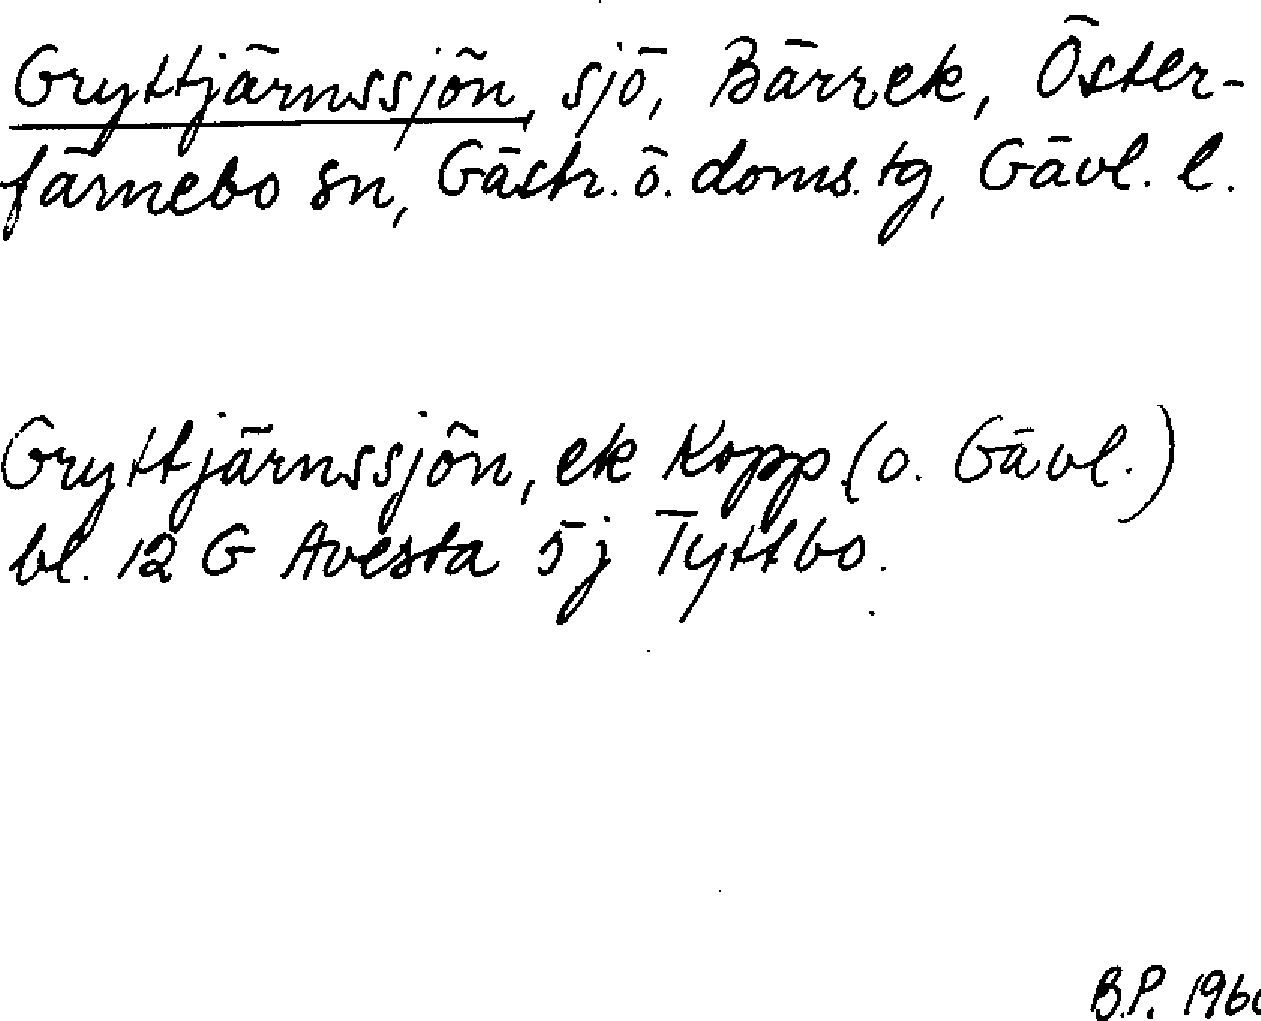 Gryttjärnssjön, sjö, Bärrek, Öster-
färnebo sn, Gästr. ö. doms. tg, Gävl. l.
Gryttjärnssjön, ek Kopp (o. Gävl.)
bl. 12 G Avesta 5 j Tyttbo.
B.P. 196